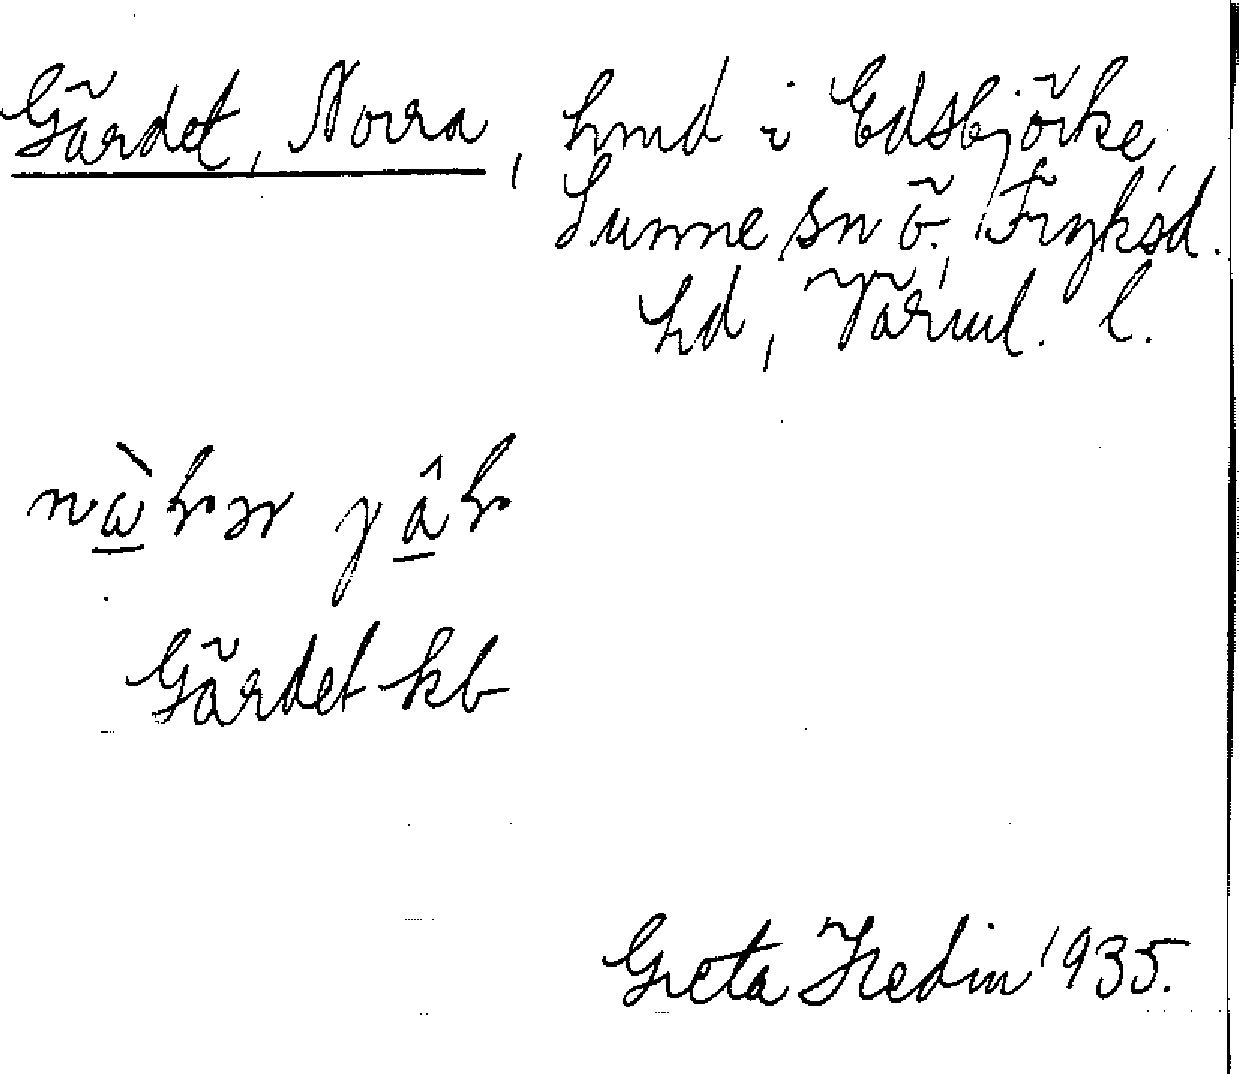 Gärdet, Norra, hmd i Edsbjörke,
Sunne sn ö. Fryksd.
hd, Värml. l.
Gärdet kb
Greta Hedin 1935.